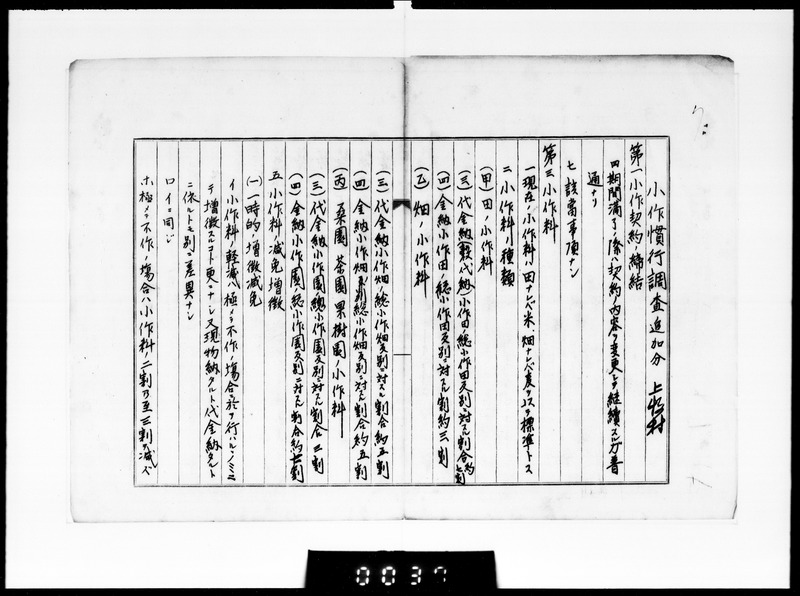 小作慣行調査追加分 上野村
第一小作契約ノ締結
四期間満了ノ際ハ契約ノ内容ヲ変更シテ継続スル方普
通ナリ
七該当事項ナシ
第三小作料
一現在ノ小作料ハ田ナレバ米、畑ナレバ麦ヲ以テ標準トス
二小作料ノ種類
(甲)田ノ小作料
(三)代金納(穀代納)小作田ノ総小作田反別ニ対スル割合約七割
(四)金納小作田ノ総小作田反別ニ対スル割約三割
(乙)畑ノ小作料
(三)代金納小作畑ノ総小作畑反別ニ対スル割合約五割
(四)金納小作畑反別総小作畑反別ニ対スル割合約五割
(丙)桑園 茶園 果樹園ノ小作料
(三)代金納小作園総小作園反別対スル割合三割
(四)金納小作園ノ総小作園反別ニ対スル割合約七割
五小作料ノ減免増徴
(一)一時的ノ増徴減免
イ小作料ノ軽減ハ極メテ不作ノ場合ニ於テ行ハルヽノミニ
テ増徴スルコト更ニナシ又現物納タルト代金納タルト
ニ依ルトモ別ニ差異ナシ
ロイニ同ジ
ホ極メテ不作ノ場合ハ小作料ノ二割乃至三割ヲ減ズ
0037